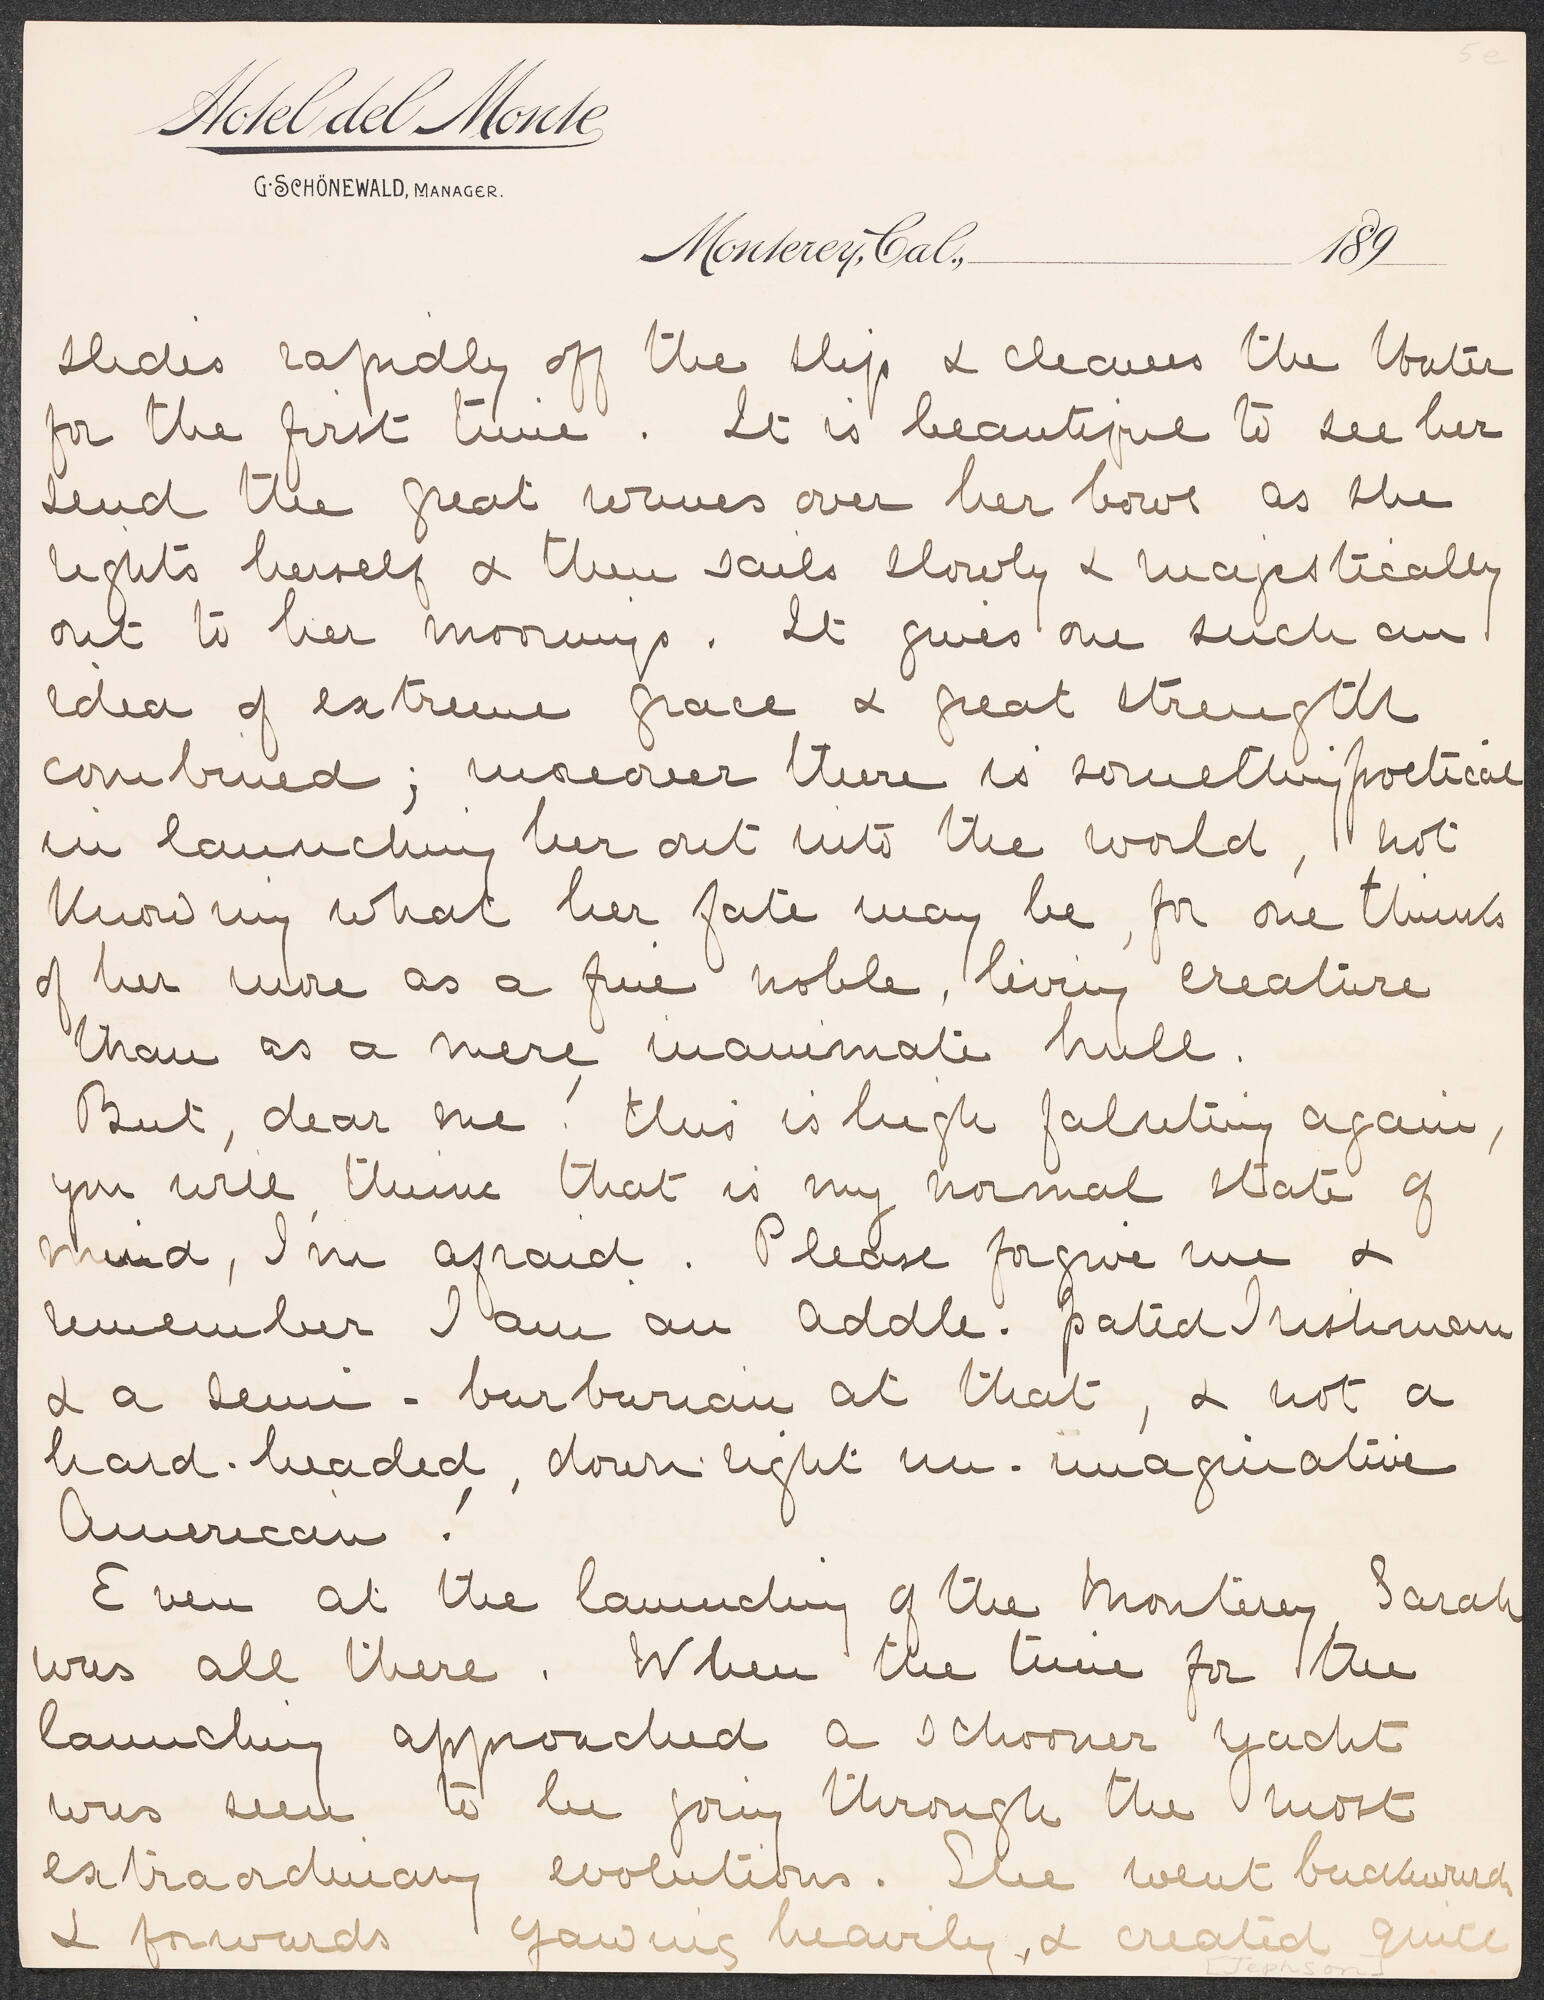 5e
Hotel del Monte
G. SCHÖNEWALD, MANAGER.
Monterey, Cal., 189
slides rapidly off the slip & cleaves the water
for the first time. It is beautiful to see her
send the great waves over her bows as she
rights herself & then sails slowly & majestically
out to her moorings. It gives one such an
idea of extreme grace & great strength
combined; moreover there is something poetical
in launching her out into the world, not
knowing what her fate may be, for one thinks
of her more as a fine noble, living creature
than as a mere inanimate hull.
But, dear me! this is high faluting again,
you will think that is my normal state of
mind, I'm afraid. Please forgive me &
remember I am an addle-pated Irishman
& a semi-barbarian at that, & not a
hard-headed, down-right un-imaginative
American!
Even at the launching of the Monterey, Sarah
was all there. When the time for the
launching approached a schooner yacht
was seen to be going through the most
extraordinary evolutions. She went backwards
& forwards yawing heavily, & created quite
[Jephson]